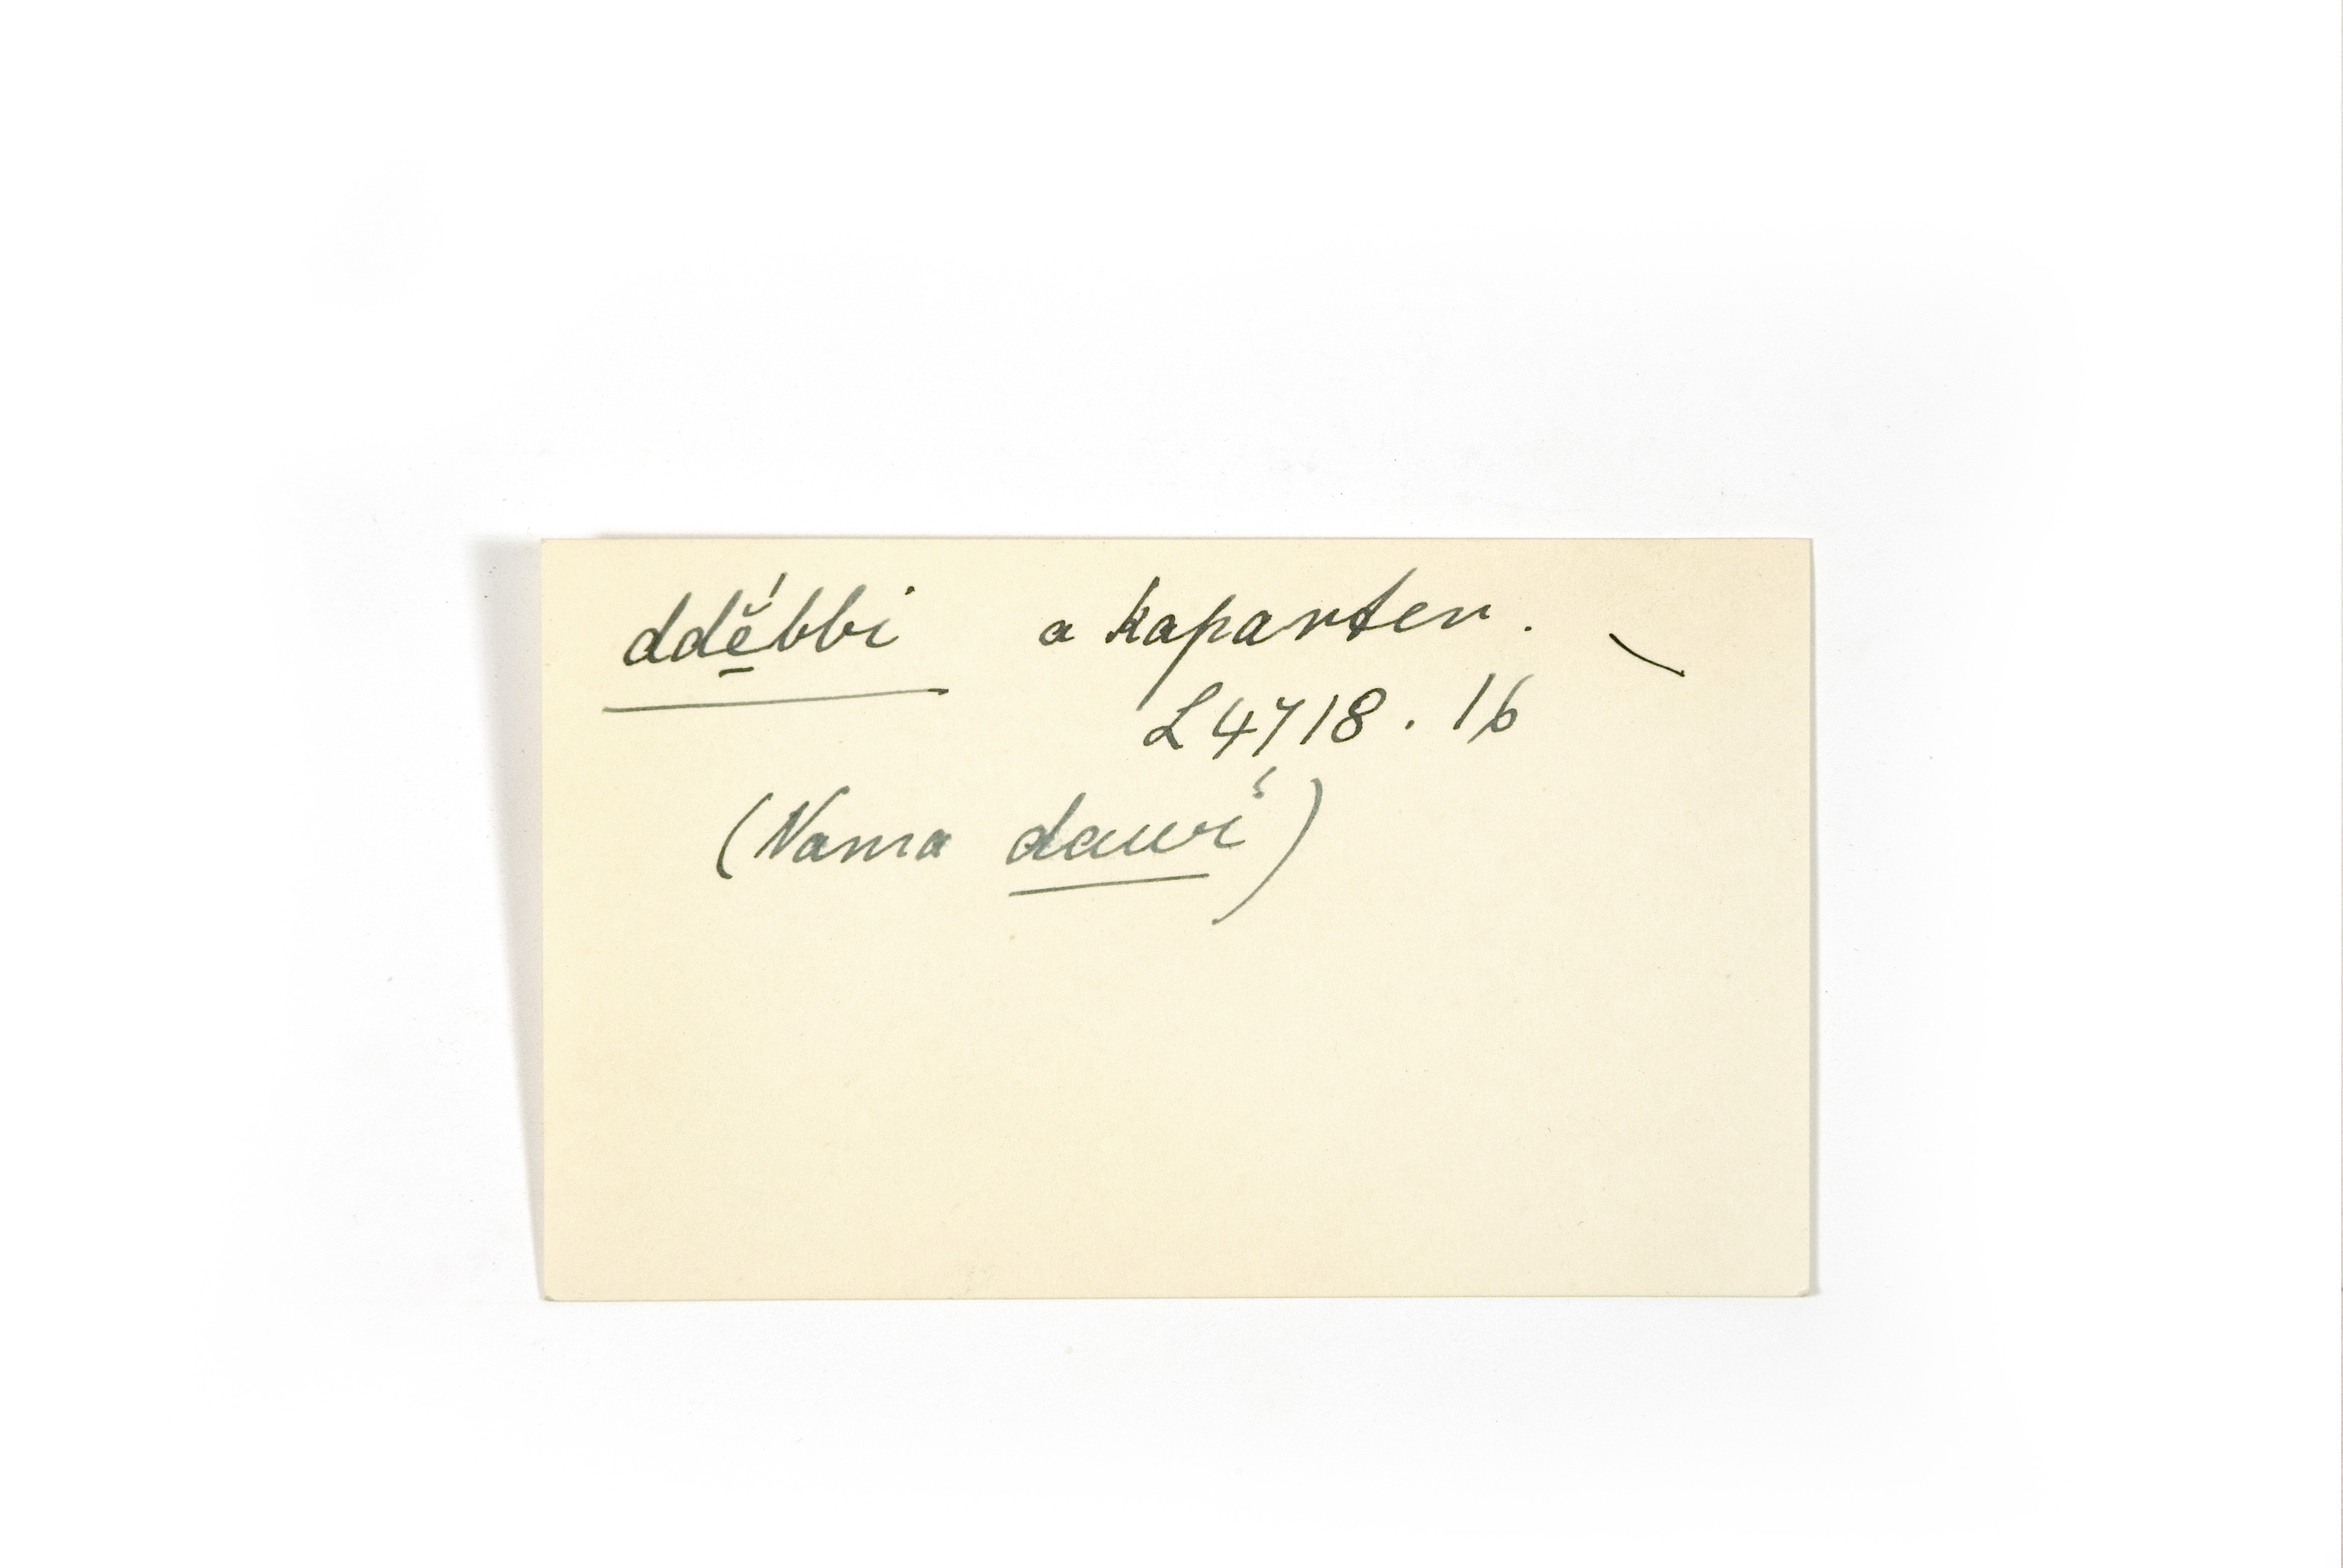 ddĕ̱́bbi a kaparten.
L 4718. 16
(Nama dauві)